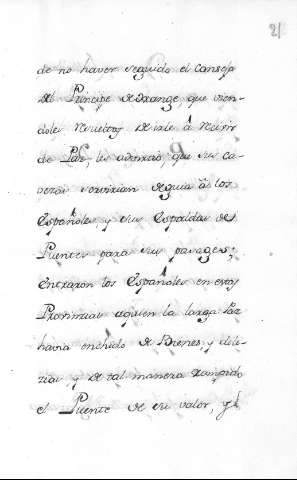 21
de no haver seguido el Consejo
del Principe de Orange, que vien-
dole resueltos de irle à recivir
de Paz, les advirtió, que sus ca-
vezas servirian de guia à los
Españoles, y sus Espaldas de
Puentes para sus pasages;
entraron los Españoles en estas
Provincias aquien la larga Paz
havia enchido de Bienes, y dele-
zias y de tal manera rompido
el Puente de su valor, qe